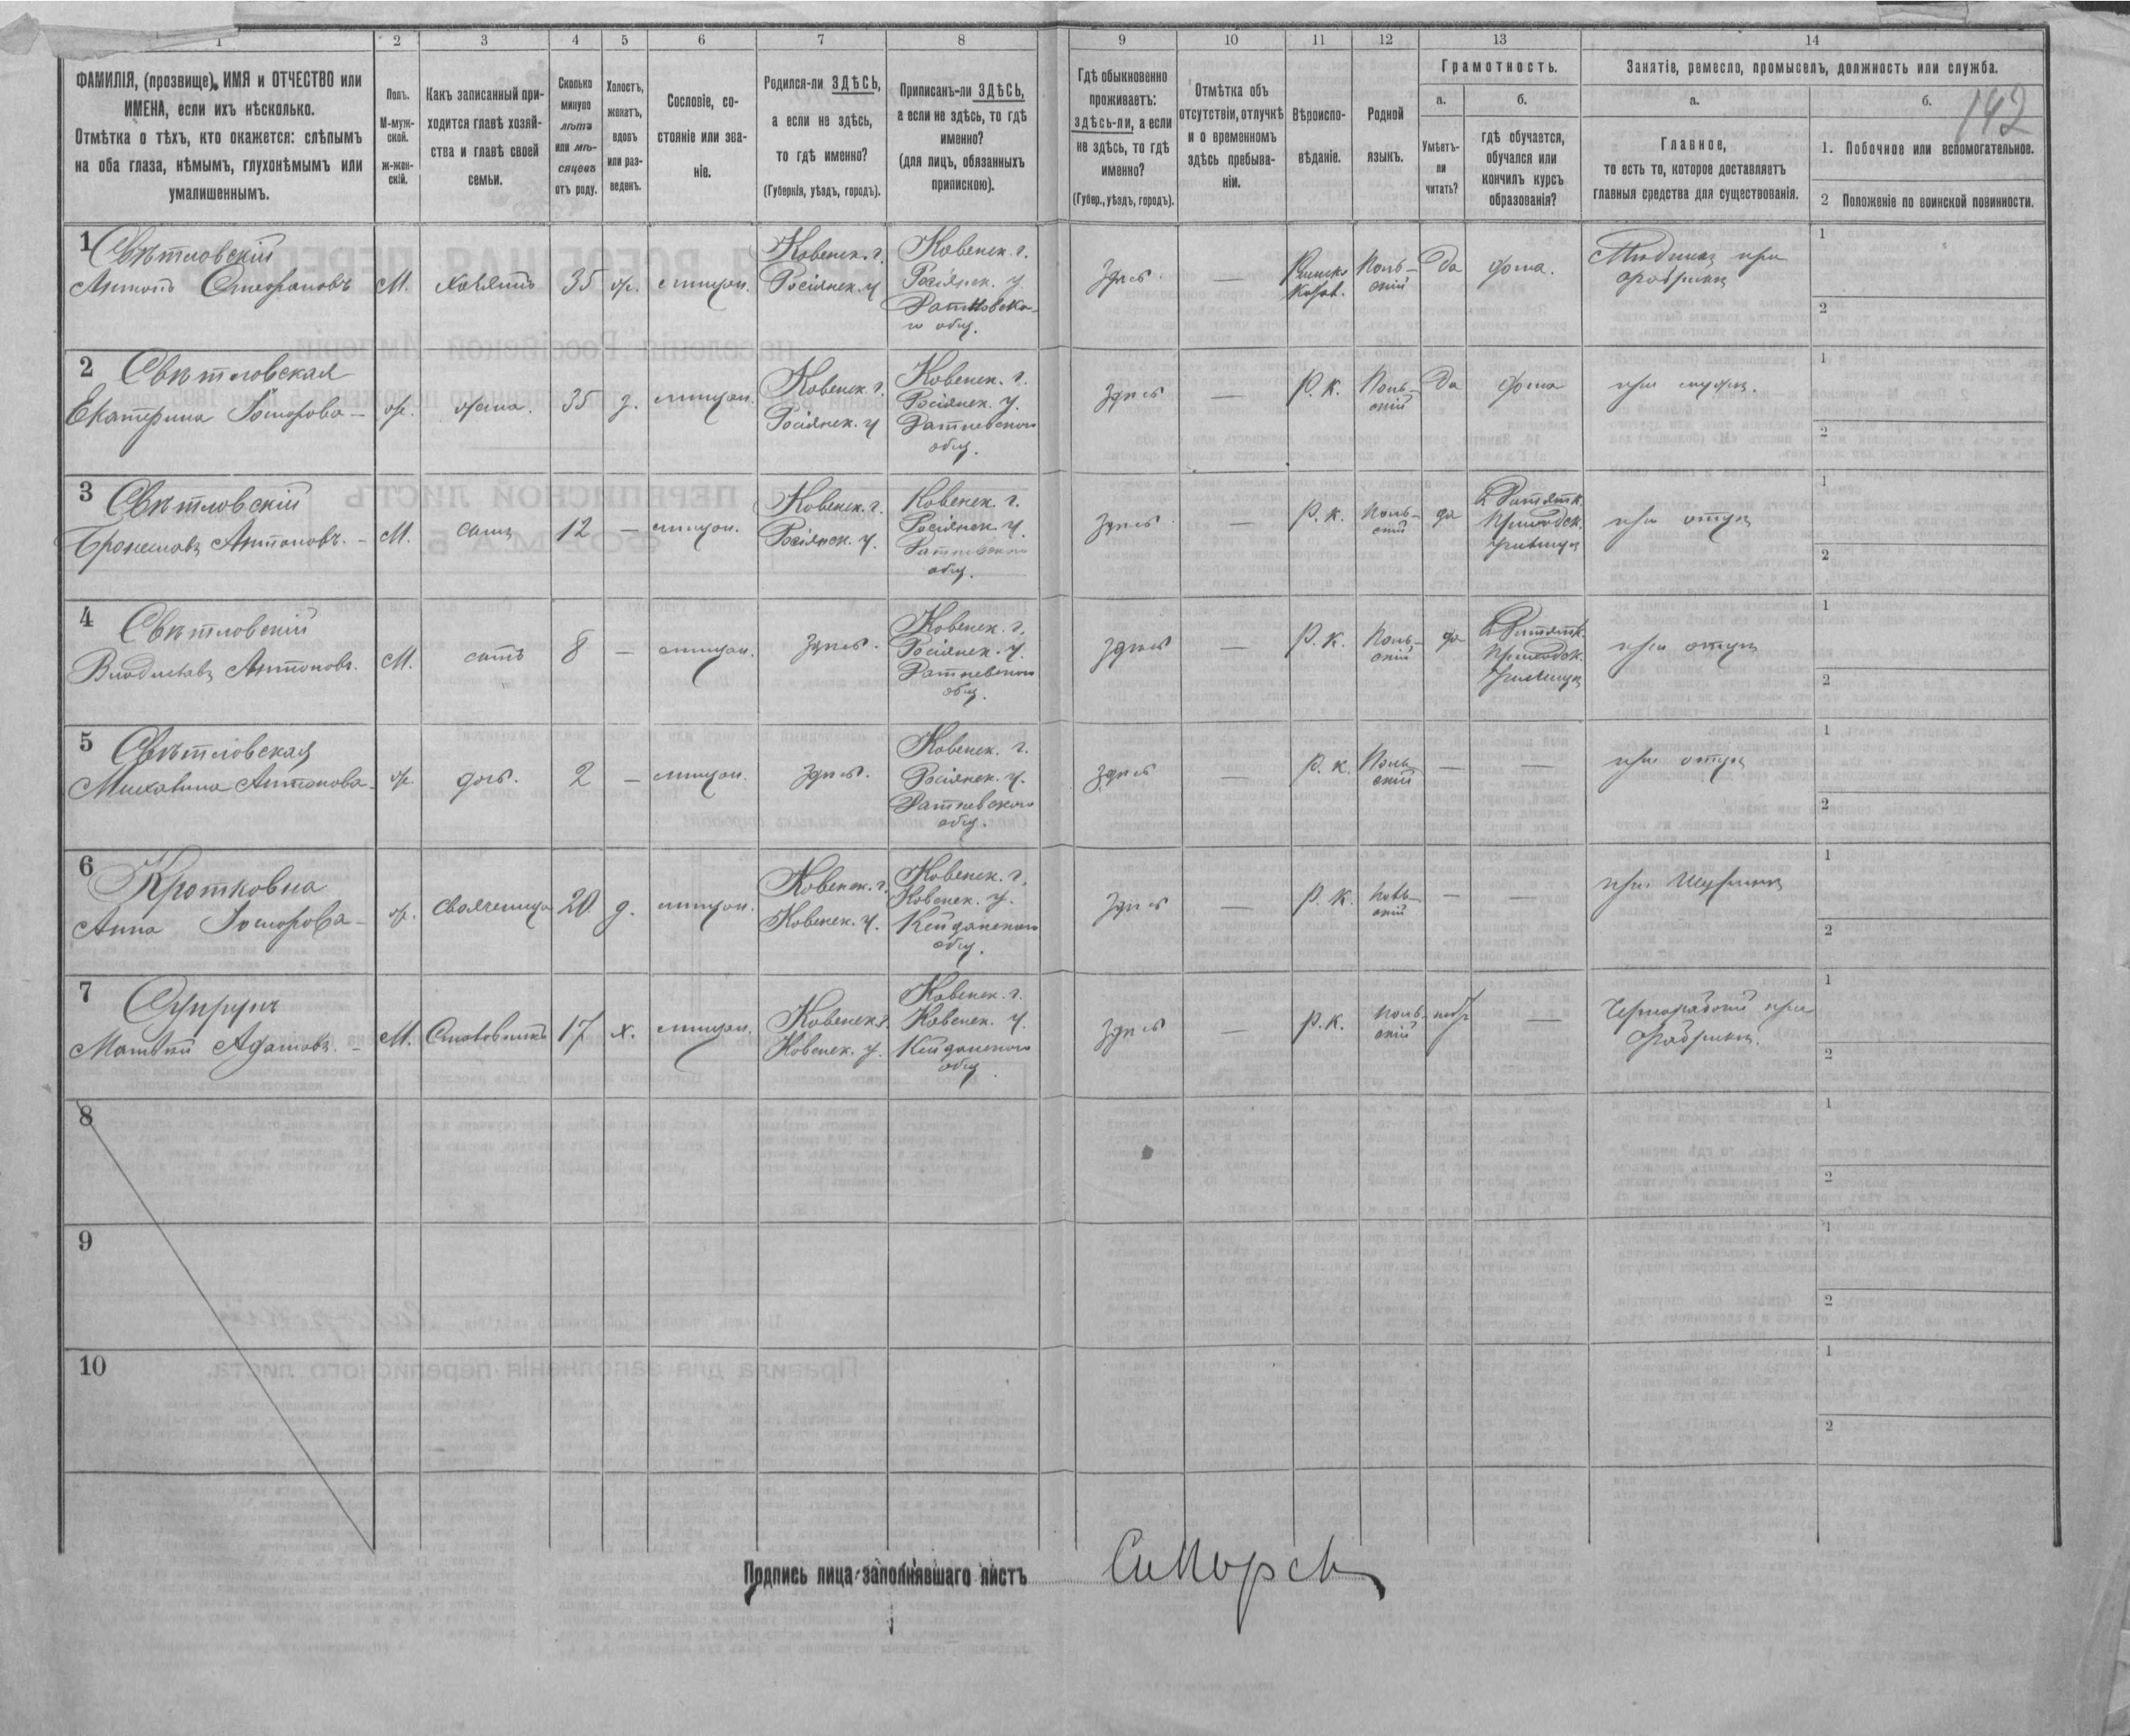 1 2 3 4 5 6 7 8 9 10 11 12 13 14
ФАМИЛІЯ, (прозвище), ИМЯ и ОТЧЕСТВО или
ИМЕНА, если ихъ нѣсколько.
Отмѣтка о тѣхъ, кто окажется: слѣпымъ
на оба глаза, нѣмымъ, глухонѣмымъ или
умалишеннымъ.
Полъ.
М-муж-
ской.
ж-жен-
скій.
Какъ записанный при-
ходится главѣ хозяй-
ства и главѣ своей
семьи.
Сколько
минуло
лѣтъ
или мѣ-
сяцевъ
отъ роду.
Холостъ,
женатъ,
вдовъ
или раз-
веденъ.
Сословіе, со-
стояніе или зва-
ніе.
Родился-ли ЗДѢСЬ,
а если не здѣсь,
то гдѣ именно?
(Губернія, уѣздъ, городъ).
Приписанъ-ли ЗДѢСЬ,
а если не здѣсь, то гдѣ
именно?
(для лицъ, обязанныхъ
припискою).
Гдѣ обыкновенно
проживаетъ:
здѣсь-ли, а если
не здѣсь, то гдѣ
именно?
(Губер., уѣздъ, городъ).
Отмѣтка объ
отсутствіи, отлучкѣ
и о временномъ
здѣсь пребыва-
ніи.
Вѣроиспо-
вѣданіе.
Родной
языкъ.
Грамотность.
а.
Умѣетъ-
ли
читать?
б.
гдѣ обучается,
обучался или
кончилъ курсъ
образованія?
Занятіе, ремесло, промыселъ, должность или служба.
а.
Главное,
то есть то, которое доставляетъ
главныя средства для существованія.
б.
142
1. Побочное или вспомогательное.
2 Положеніе по воинской повинности.
1
Свѣтловскій
Антонъ Стефановъ М. хозяинъ 35 ж. мищан.
Ковенск. г.
Росіянск. у
Ковенск. г.
Росіянск. у.
общ.
здѣсь — Римско
Катол.
Поль-
скій
да дома.
при
фабрикѣ
1
2
2 Свѣтловская
Екатерина ж. жена. 35 з. мищан.
Ковенск. г.
Росіянск. у
Ковенск. г.
Росіянск. у.
общ.
здѣсь — Р. К. Поль-
скій
да дома при мужѣ.
1
2
3 Свѣтловскій
Брониславъ Антоновъ. М. сынъ 12 — мищан.
Ковенск. г.
Росіянск. у.
Ковенск. г.
Росіянск. у.
общ.
здѣсь — Р. К. Поль-
скій
да
Приходск.
училищѣ
при отцѣ
1
2
4 Свѣтловскій
Владиславъ Антоновъ. М. сынъ 8 — мищан. здѣсь.
Ковенск. г.
Росіянск. у.
общ.
здѣсь — Р. К. Поль-
скій
да
Приходск.
училищѣ
при отцѣ
1
2
5 Свѣтловская
Михалина Антонова ж. дочь. 2 — мищан. здѣсь.
Ковенск. г.
Росіянск. у.
общ.
здѣсь — Р. К. Поль-
скій
— — при отцѣ
1
2
6
Анна ж. свояченица 20 д. мищан.
Ковенск. г.
Ковенск. у.
Ковенск. г.
Ковенск. у.
Кейданскаго
общ.
здѣсь — Р. К. Поль-
скій
— — при Шуринѣ
1
2
7
Матвѣй Адамовъ. М. Столовникъ 17 х. мищан.
Ковенск. г.
Ковенск. у.
Ковенск. г.
Ковенск. у.
Кейданскаго
общ.
здѣсь — Р. К. Поль-
скій
нѣт — Чернорабочій при
Фабрикѣ.
1
2
8
1
2
9
1
2
10
1
2
Подпись лица заполнявшаго листъ